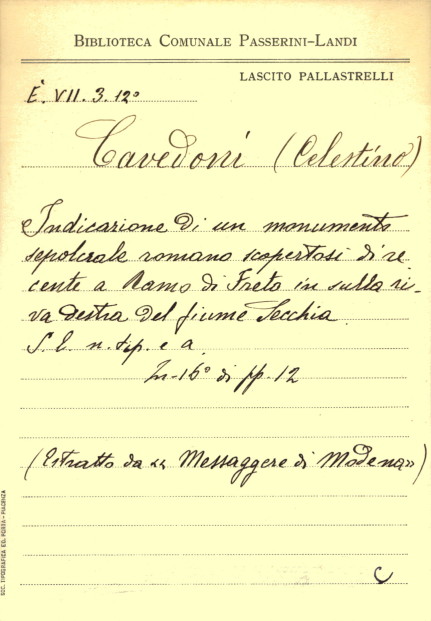 BIBLIOTECA COMUNALE PASSERINI-LANDI
LASCITO PALLASTRELLI
E. VII. 3. 12°
Cavedoni (Celestino)
Indicazione di un monumento
sepolcrale romano scopertosi di re
cente a Ramo di Freto in sulla ri-
va destra del fiume Secchia.
S. l. n. tip. e a.
In-16° di pp. 12
(Estratto da « Messaggere di Modena»)
C
SOC. TIPOGRAFICA ED. PORTA - PIACENZA